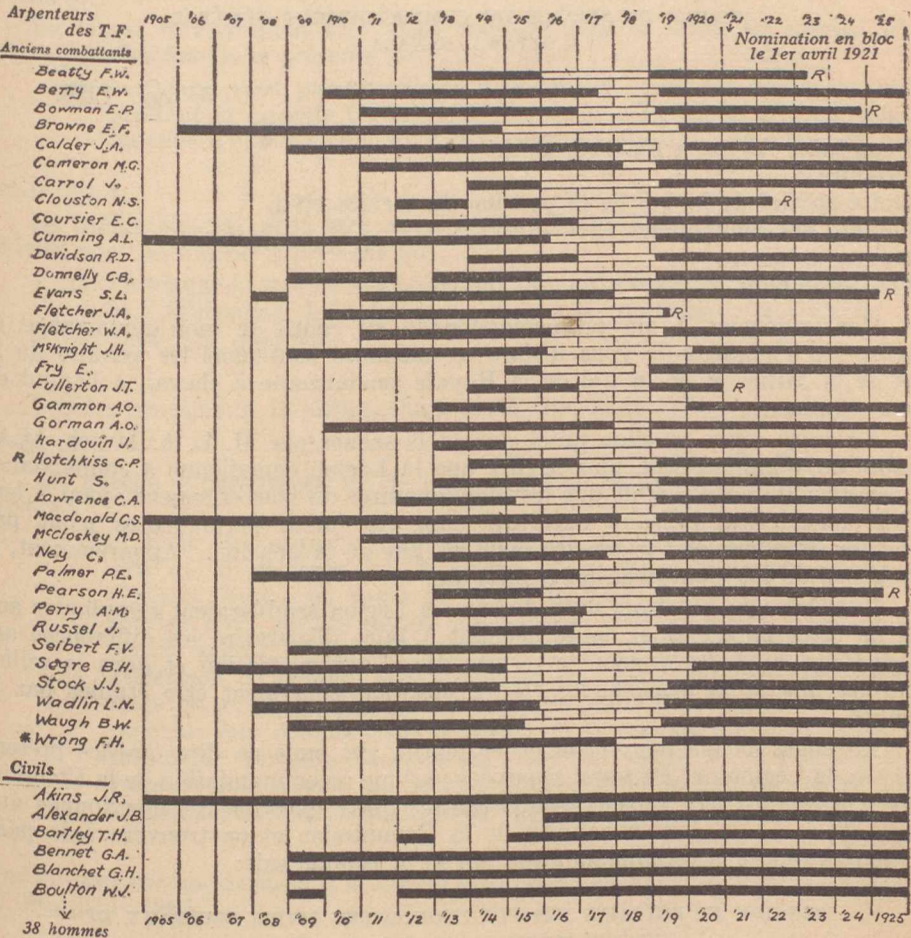 Arpenteurs
des T.F.
1905 '06 '07 '08 '09 1910 '11 '12 '13 '49 '15 '16 '17 '18 '19 1920 '21 '22 '23 '24 '25
Nomination en bloc
le 1er avril 1921
Anciens combattants
Beatty F.W. R
Berry E.W.
Bowman E.P. R
Browne E.F.
Calder J.A.
Cameron M.G.
Carrol J.
Clouston N.S. R
Coursier E.C.
Cumming A.L.
Davidson R.D.
Donnelly C.B.
Evans S.L. R
Fletcher J.A. R
Fletcher W.A.
McKnight J.H.
Fry E.
Fullerton J.T. R
Gammon A.O.
Gorman A.O.
Hardouin J.
R Hotchkiss C.P.
Hunt S.
Lawrence C.A.
Macdonald C.S.
McCloskey M.D.
Ney C.
Palmer P.E.
Pearson H.E. R
Perry A.M.
Russel J.
Seibert F.V.
Segre B.H.
Stock J.J.
Wadlin L.N.
Waugh B.W.
*Wrong F.H.
Civils
Akins J.R.
Alexander J.B.
Bartley T.H.
Bennet G.A.
Blanchet G.H.
Boulton W.J.
1905 '06 '07 '08 '09 '10 '11 '12 '13 '14 '15 '16 '17 '18 '19 '20 '21 '22 '23 '24 1925
38 hommes